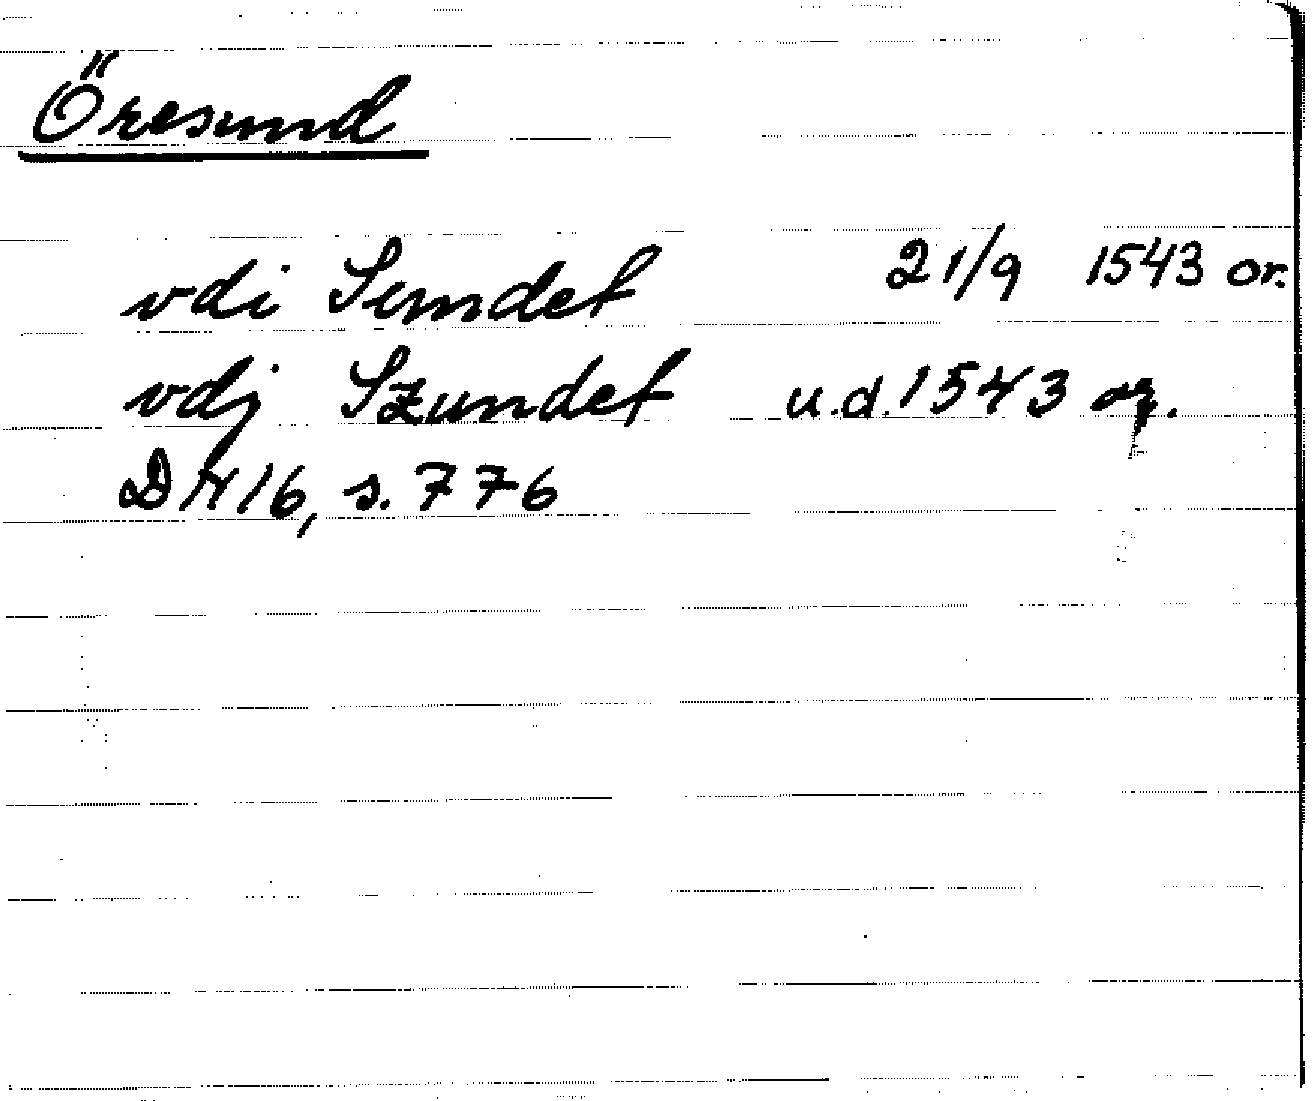 Öresund
vdi Sundet 21/9 1543 or.
vdj Szundet u.d. 1543 or.
DN 16, s. 776